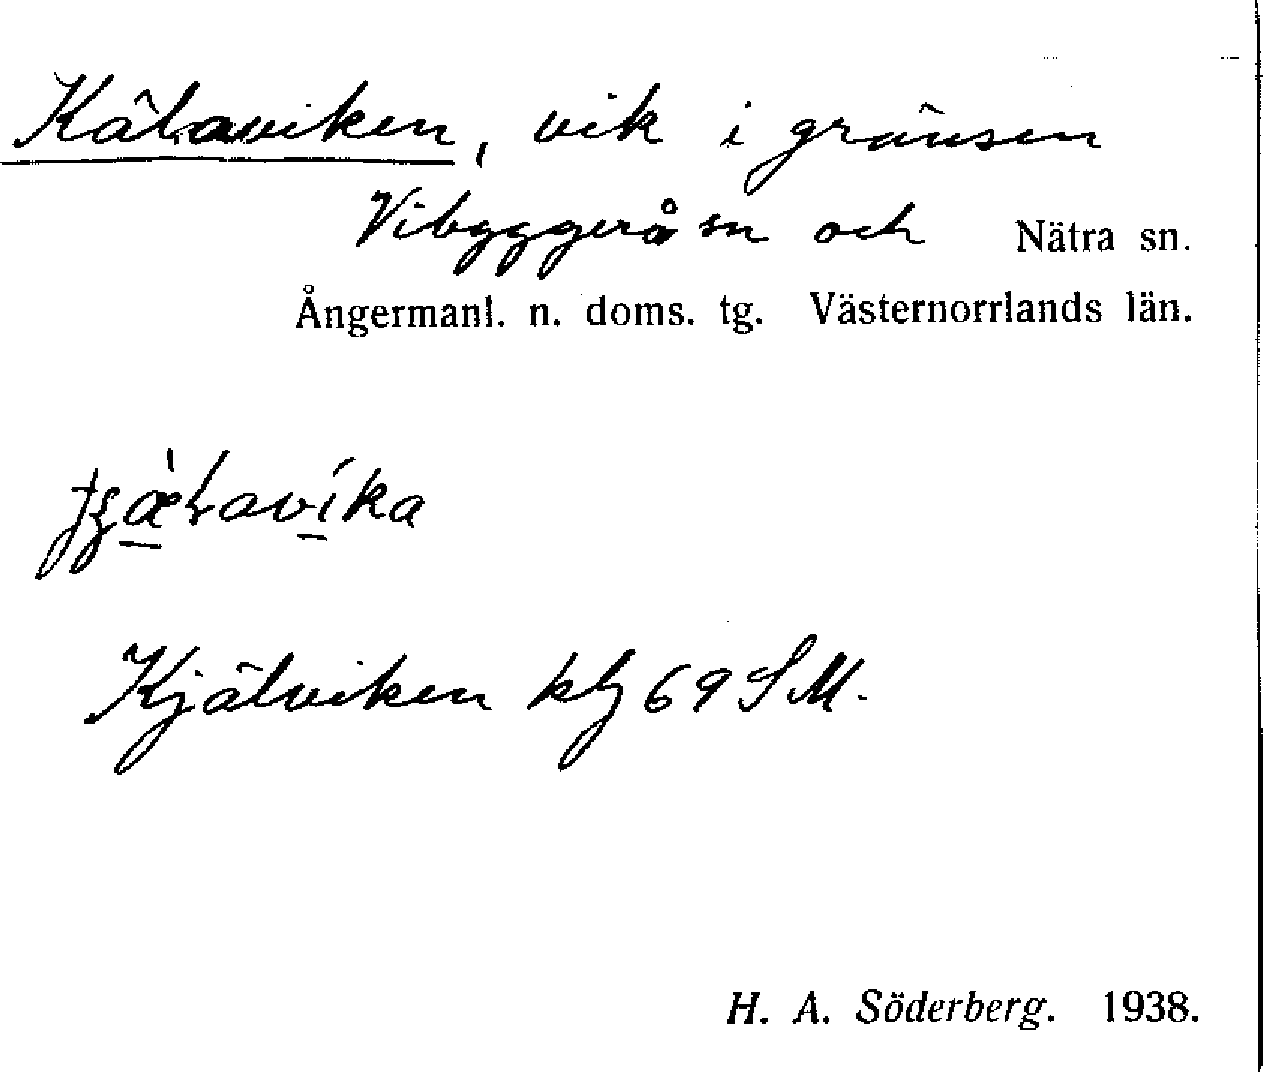 Kälaviken, vik i gränsen
Vibyggerå sn och Nätra sn.
Ångermanl. n. doms. tg. Västernorrlands län.
Kjälviken kbl 69 SM.
H. A. Söderberg. 1938.